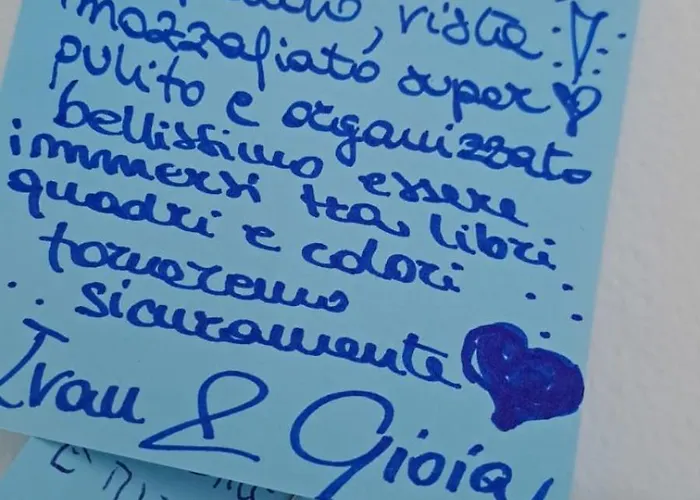 vista
mozzafiato super
pulito e organizzato
bellissimo essere
immersi tra libri
quadri e colori
torneremo
sicuramente
Ivan & Gioia!